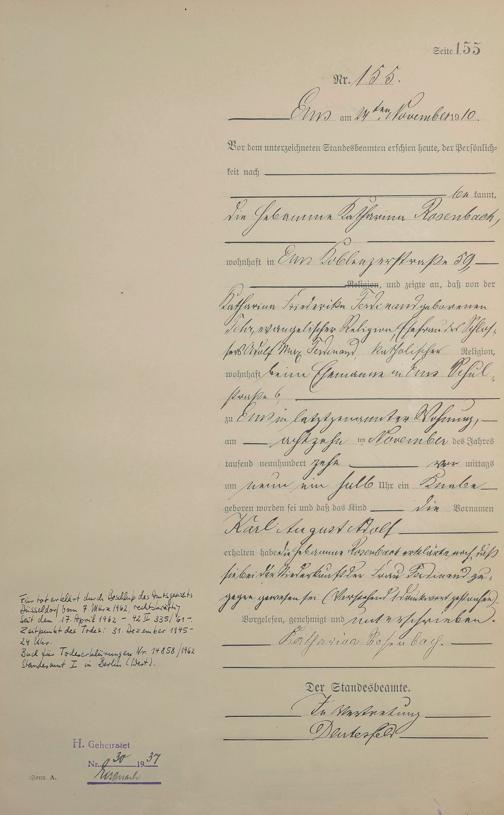 Seite 155
Nr. 155.
Ems am ten November 1910.
Vor dem unterzeichneten Standesbeamten erschien heute, der Persönlich-
keit nach
be kannt,
die Hebamme Katharina Rosenbach,
wohnhaft in Ems Koblenzerstraße 59,
Religion, und zeigte an, daß von der
Katharina Friederike Ferdinand geborenen
evangelischer Religion, Ehefrau des Schlos-
sers Adolf Max Ferdinand, katholischer Religion,
wohnhaft beim Ehemanne in Ems Schul-
straße 6,
zu Ems in letztgenannter Wohnung,
am achtzehn ten November des Jahres
tausend neunhundert zehn vor mittags
um neun ein halb Uhr ein Knabe
geboren worden sei und daß das Kind die Vornamen
Karl August Adolf
erhalten habe. die Hebamme Rosenbach erklärte noch, daß
sie bei der Niederkunft der Frau Ferdinand zu-
gegen gewesen sei. (Vorstehend Druckwort gestrichen)
Vorgelesen, genehmigt und unterschrieben.
Katharina Rosenbach.
Der Standesbeamte.
In Vertretung
Für tot erklärt durch Beschluß des Amtsgerichts
Düsseldorf vom 7. März 1962, rechtskräftig
seit dem 17. April 1962 - 42 II 335/61 -
Zeitpunkt des Todes: 31. Dezember 1945 -
24 Uhr.
Buch für Todeserklärungen Nr. 14858/1962
Standesamt I in Berlin (West).
H. Geheiratet
Nr. 30 1937
Form A.